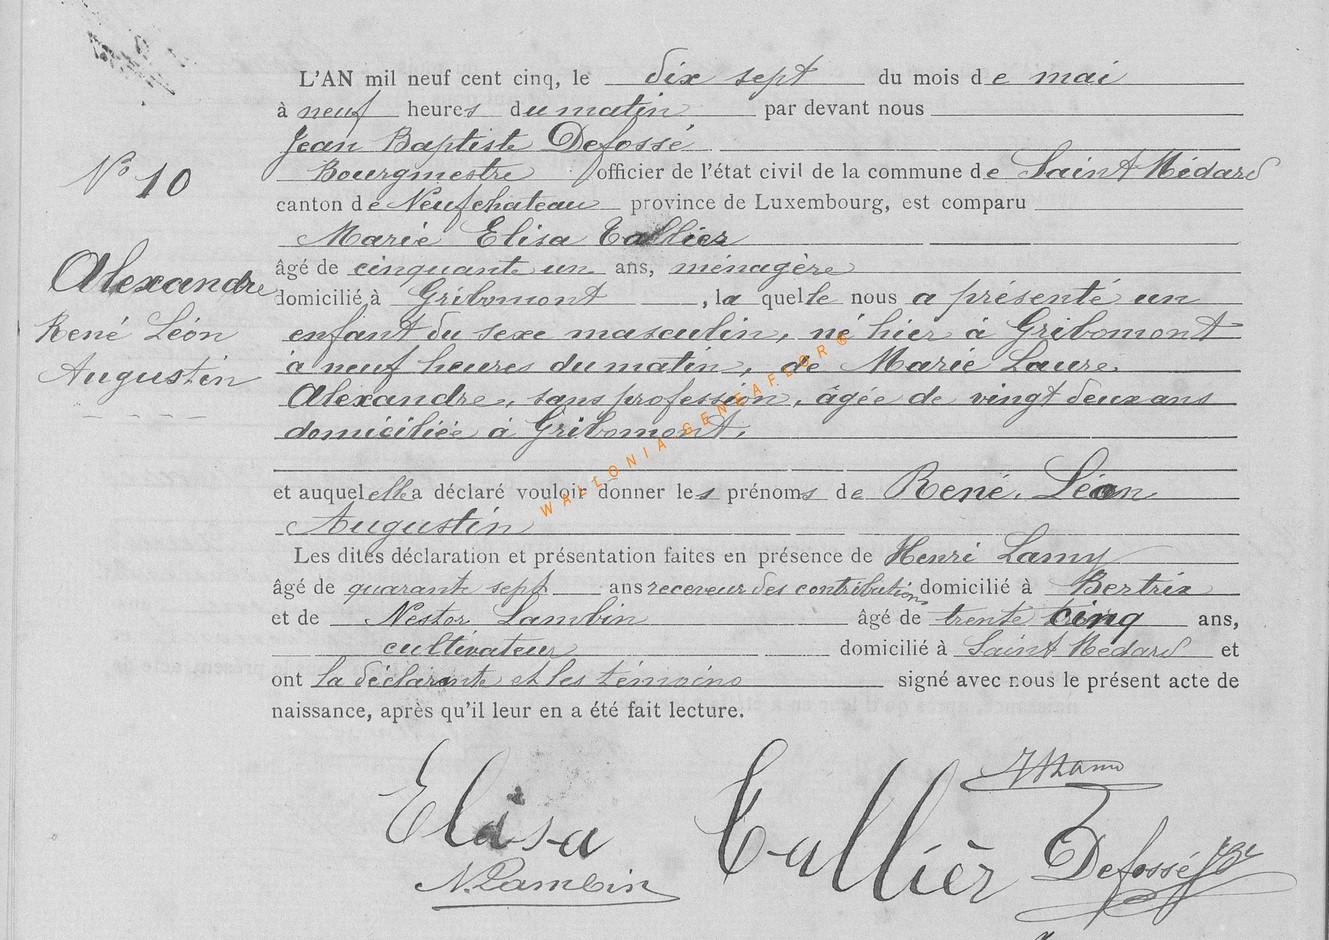 L'AN mil neuf cent cinq, le dix sept du mois de mai
à neuf heures du matin par devant nous
Jean Baptiste Defossé
Bourgmestre officier de l'état civil de la commune de Saint Médard
canton de Neufchateau province de Luxembourg, est comparu
Marie Elisa Tallier
âgé de cinquante un ans, ménagère
domicilié à Gribomont, la quelle nous a présenté un
enfant du sexe masculin, né hier à Gribomont
à neuf heures du matin, de Marie Laure
Alexandre, sans profession, âgée de vingt deux ans
domiciliée à Gribomont.
et auquel elle a déclaré vouloir donner les prénoms de René, Léon
Augustin
Les dites déclaration et présentation faites en présence de Henri Lamy
âgé de quarante sept ans receveur des contributions domicilié à Bertrix
et de Nestor Lambin âgé de trente cinq ans,
cultivateur domicilié à Saint Médard et
ont la déclarante et les témoins signé avec nous le présent acte de
naissance, après qu'il leur en a été fait lecture.
N° 10
Alexandre
René Léon
Augustin
WALLONIA-GENEAFLOR©
Elisa Tallier
N. Lambin
Defossé JB